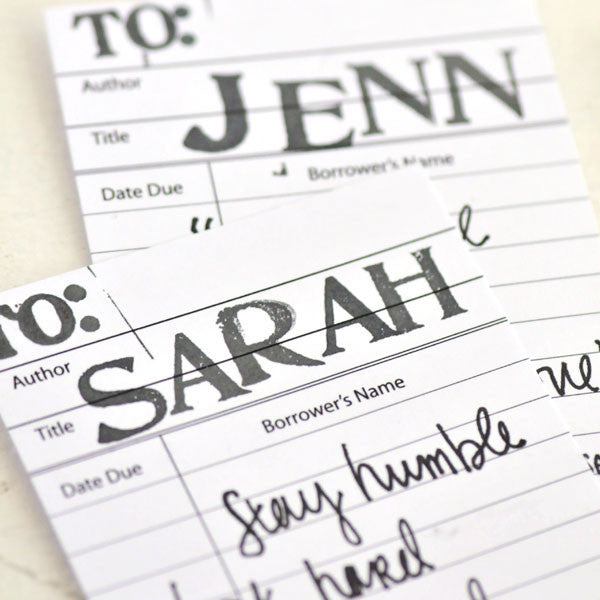 TO:
Author
JENN
Title
Date Due
Borrower's Name
TO:
Author
SARAH
Title
Borrower's Name
Date Due
Stay humble
hard